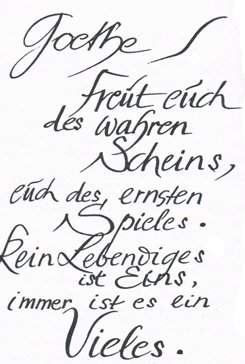 Goethe
Freut euch
des wahren
Scheins,
euch des ernsten
Spieles.
Kein Lebendiges
ist Eins,
immer ist es ein
Vieles.